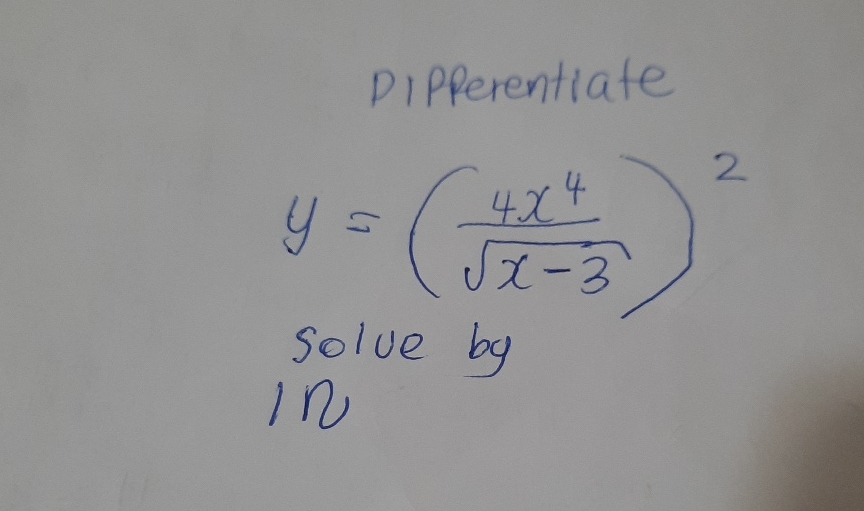 Differentiate
y = (4x⁴/√(x-3))²
Solve by
ln